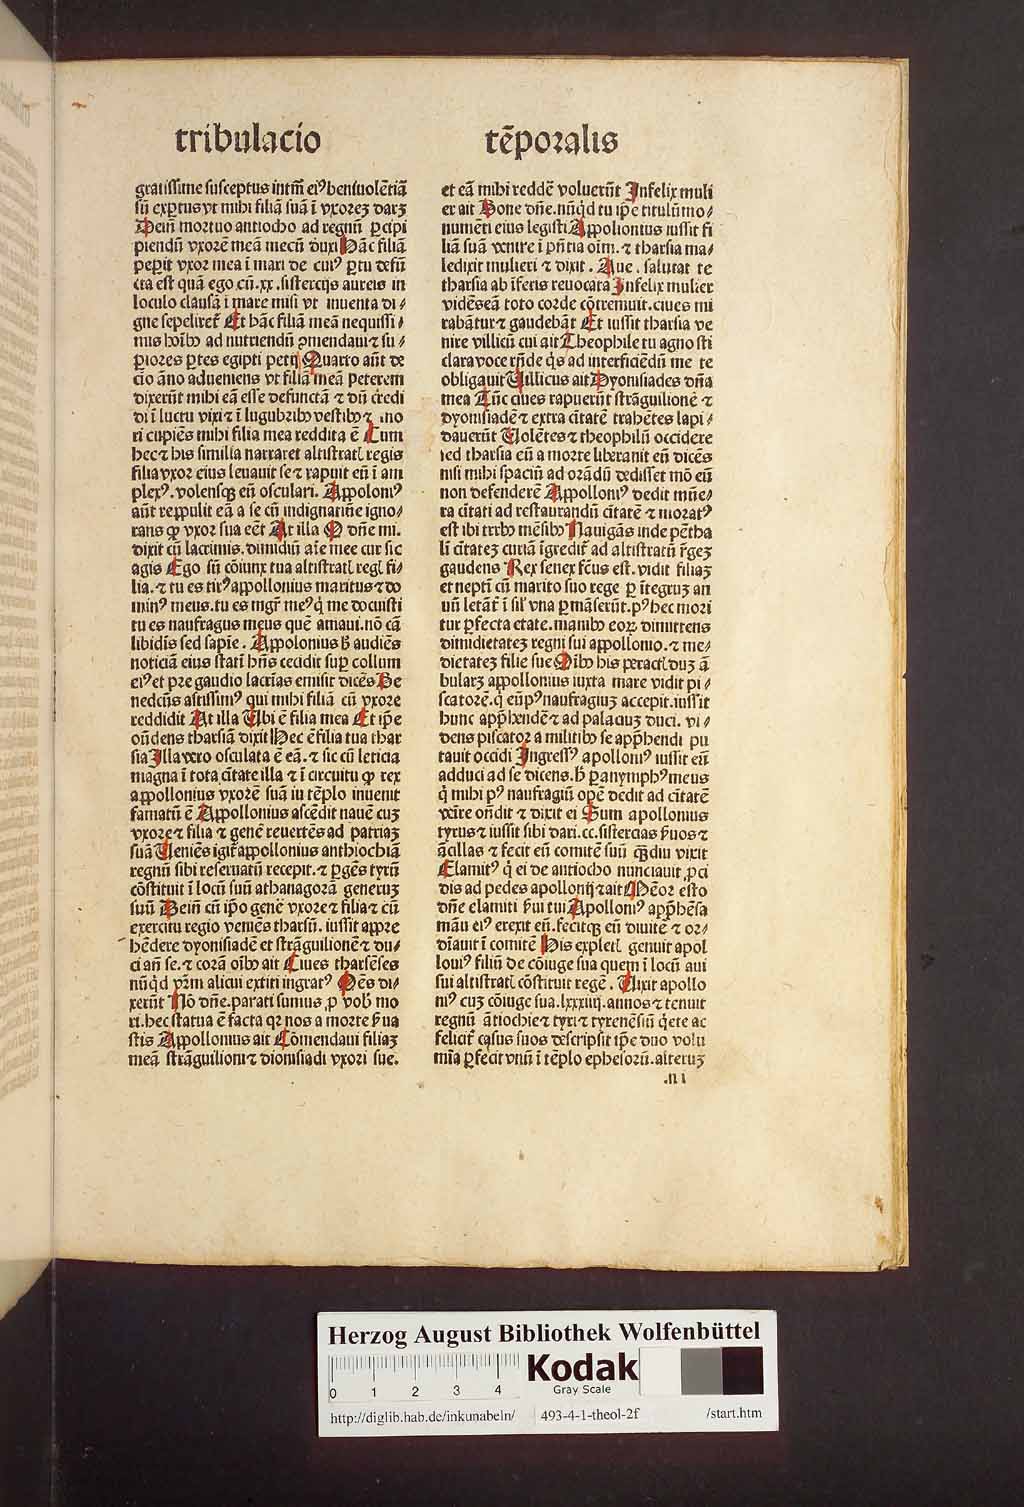 tribulacio tēporalis
gratissime susceptus intm̄ eiꝰ beniuolētiā
sū exꝑtus vt mihi filiā suā ī vxorez darꝫ
Dein̄ mortuo antiocho ad regnū ꝑcipi
piendū vxorē meā mecū duxi Hāc filiā
peꝑit vxor mea ī mari de cuiꝰ ꝑtu defū
cta est quā ego cū .xx. sistercijs aureis in
loculo clausā ī mare misi vt inuenta di⸗
gne sepeliret᷑ Et hāc filiā meā nequissi⸗
mis hoībꝰ ad nutriendū ꝯmendaui ⁊ su⸗
ꝑiores ꝑtes egipti petij Quarto aūt de
cīo āno adueniens vt filiā meā peterem
dixerūt mihi eā esse defunctā ⁊ dū credi
di ī luctu vixi ⁊ ī lugubribꝰ vestibꝰ ⁊ mo
ri cupiēs mihi filia mea reddita ē Cum
hec ⁊ his similia narraret altistratꝭ regis
filia vxor eius leuauit se ⁊ rapuit eū ī am
plexꝰ. volensqꝫ eū osculari. Appoloniꝰ
aūt reꝑpulit eā a se cū indignatiōe igno⸗
rans ꝙ vxor sua eēt At illa O dn̄e mi.
dixit cū lacrimis. dimidiū aīe mee cur sic
agis Ego sū cōiunx tua altistratꝭ regꝭ fi⸗
lia. ⁊ tu es tirꝰ appollonius maritus ⁊ do
minꝰ meus. tu es mgr̄ meꝰ q̇ me docuisti
tu es naufragus meus quē amaui. nō cā
libidīs sed sapīe. Appolonius ḣ audiēs
noticiā eius statī hn̄s cecidit suꝑ collum
eiꝰ et pre gaudio lacrīas emisit dicēs Be
nedcūs altissimꝰ qui mihi filiā cū vxore
reddidit At illa Vbi ē filia mea Et ip̄e
on̄dens tharsiā dixit Hec ē filia tua thar
sia Illa vero osculata ē eā. ⁊ sic cū leticia
magna ī tota cītate illa ⁊ ī circuitu ꝙ rex
appollonius vxorē suā iu tēplo inuenit
famatū ē Appollonius ascēdit nauē cuꝫ
vxore ⁊ filia ⁊ genē reuertēs ad patriaꝫ
suā Veniēs igit᷑ appollonius anthiochiā
regnū sibi reseruatū recepit. ⁊ ꝑgēs tyrū
cōstituit ī locū suū athanagorā generuꝫ
suū Dein̄ cū ip̄o genē vxore ⁊ filia ⁊ cū
exercitu regio veniēs tharsū. iussit appre
hēdere dyonisiadē et strāguilionē ⁊ du⸗
ci an̄ se. ⁊ corā oībꝰ ait Ciues tharsēses
nūq̇d vr̄m alicui extiti ingratꝰ Oēs di⸗
xerūt Nō dn̄e. parati sumus ꝓ vobꝭ mo
ri. hec statua ē facta qꝛ nos a morte ẜua
stis Appollonius ait Cōmendaui filiaꝫ
meā strāguilioni ⁊ dionisiadi vxori sue.
et eā mihi reddē voluerūt Infelix muli
er ait Bone dn̄e. nūq̇d tu ip̄e titulū mo⸗
numēti eius legisti Appollonius iussit fi
liā suā venire ī pn̄tia oīm. ⁊ tharsia ma⸗
ledixit mulieri ⁊ dixit. Aue. salutat te
tharsia ab īferis reuocata Infelix mulier
vidēs eā toto corde cōtremuit. ciues mi
rabāntur ⁊ gaudebāt Et iussit tharsia ve
nire villicū cui ait Theophile tu agnosti
clara voce rn̄de q̇s ad interficiēdū me te
obligauit Villicus ait Dyonisiades dn̄a
mea Tūc ciues rapuerūt strāguilionē ⁊
dyonisiadē ⁊ extra cītatē trahētes lapi⸗
dauerūt Volētes ⁊ theophilū occidere
sed tharsia eū a morte liberauit eū dicēs
nisi mihi spaciū ad orādū dedisset mō eū
non defenderē Appolloniꝰ dedit mūe⸗
ra cītati ad restaurandū cītatē ⁊ moratꝰ
est ibi tribꝰ mēsibꝰ Nauigās inde pētha
li cītateꝫ curiā īgredit᷑ ad altistratū r̄geꝫ
gaudens Rex senex fcūs est. vidit filiaꝫ
et neptī cū marito suo rege ꝑ īteg̊ꝝ an
nū letāt᷑ ī sil̓ vna ꝑmāserūt. pꝰ hec mori
tur ꝑfecta etate. manibꝰ eoꝝ dimittens
dimidietateꝫ regni sui appollonio. ⁊ me⸗
dietateꝫ filie sue Oībꝰ his peractꝭ duꝫ ā
bularꝫ appollonius iuxta mare vidit pi⸗
scatorē. q̇ eū pꝰ naufragiuꝫ accepit. iussit
hunc app̄hendē ⁊ ad palaciuꝫ duci. vi⸗
dens piscator a militibꝰ se app̄hendi pu
tauit occidi Ingressꝰ apolloniꝰ iussit eū
adduci ad se dicens. ḣ ꝑanymphꝰ meus
q̇ mihi pꝰ naufragiū opē dedit ad cītatē
veīre on̄dit ⁊ dixit ei Sum apollonius
tyrus ⁊ iussit sibi dari .cc. sistercias ẜuos ⁊
ācillas ⁊ fecit eū comitē suū qḿdiu vixit
Clamitꝰ q̇ ei de antiocho nunciauit ꝓci
dis ad pedes apollonij ⁊ ait Mēor esto
dn̄e elamiti ẜui tui Apolloniꝰ app̄hēsa
māu eiꝰ erexit eū. fecitqꝫ eū diuitē ⁊ or⸗
dīauit ī comitē His expletꝭ genuit apol
loniꝰ filiū de cōiuge sua quem ī locū aui
sui altistratꝭ cōstituit regē. Vixit apollo
niꝰ cuꝫ cōiuge sua .lxxxiiij. annos ⁊ tenuit
regnū ātiochie ⁊ tyri ⁊ tyrenēsiū q̇ete ac
felicit᷑ casus suos descripsit ip̄e duo volu
mīa ꝑfecit vnū ī tēplo ephesoꝝ. alteruꝫ
Herzog August Bibliothek Wolfenbüttel
0 1 2 3 4 Kodak
Gray Scale
http://diglib.hab.de/inkunabeln/ 493-4-1-theol-2f /start.htm